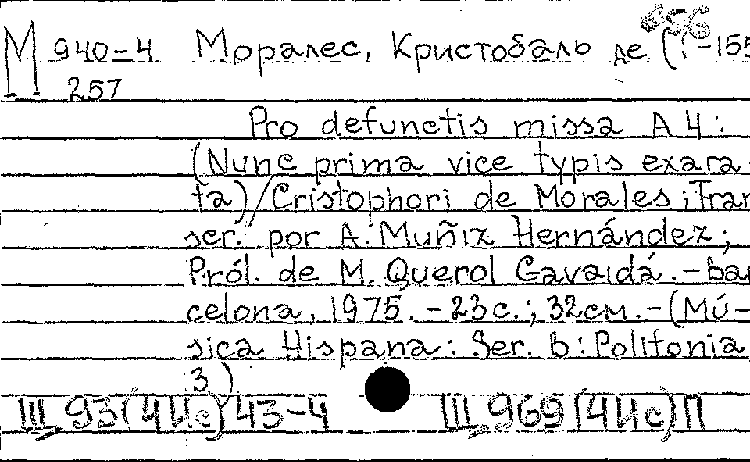 М 940-4 Моралес, Кристобаль де (?-155
257
Pro defunctis missa A 4:
(Nunc prima vice typis exara-
ta) / Cristophori de Morales; Tran
scr. por A. Muñiz Hernández;
Pról. de M. Querol Gavaldá. - bar
celona, 1975. - 23 с.; 32 см. - (Mú-
sica Hispana: Ser. b: Polifonia
3)
Ш 93(4Ис)43-4 Ш 969(4Ис)П